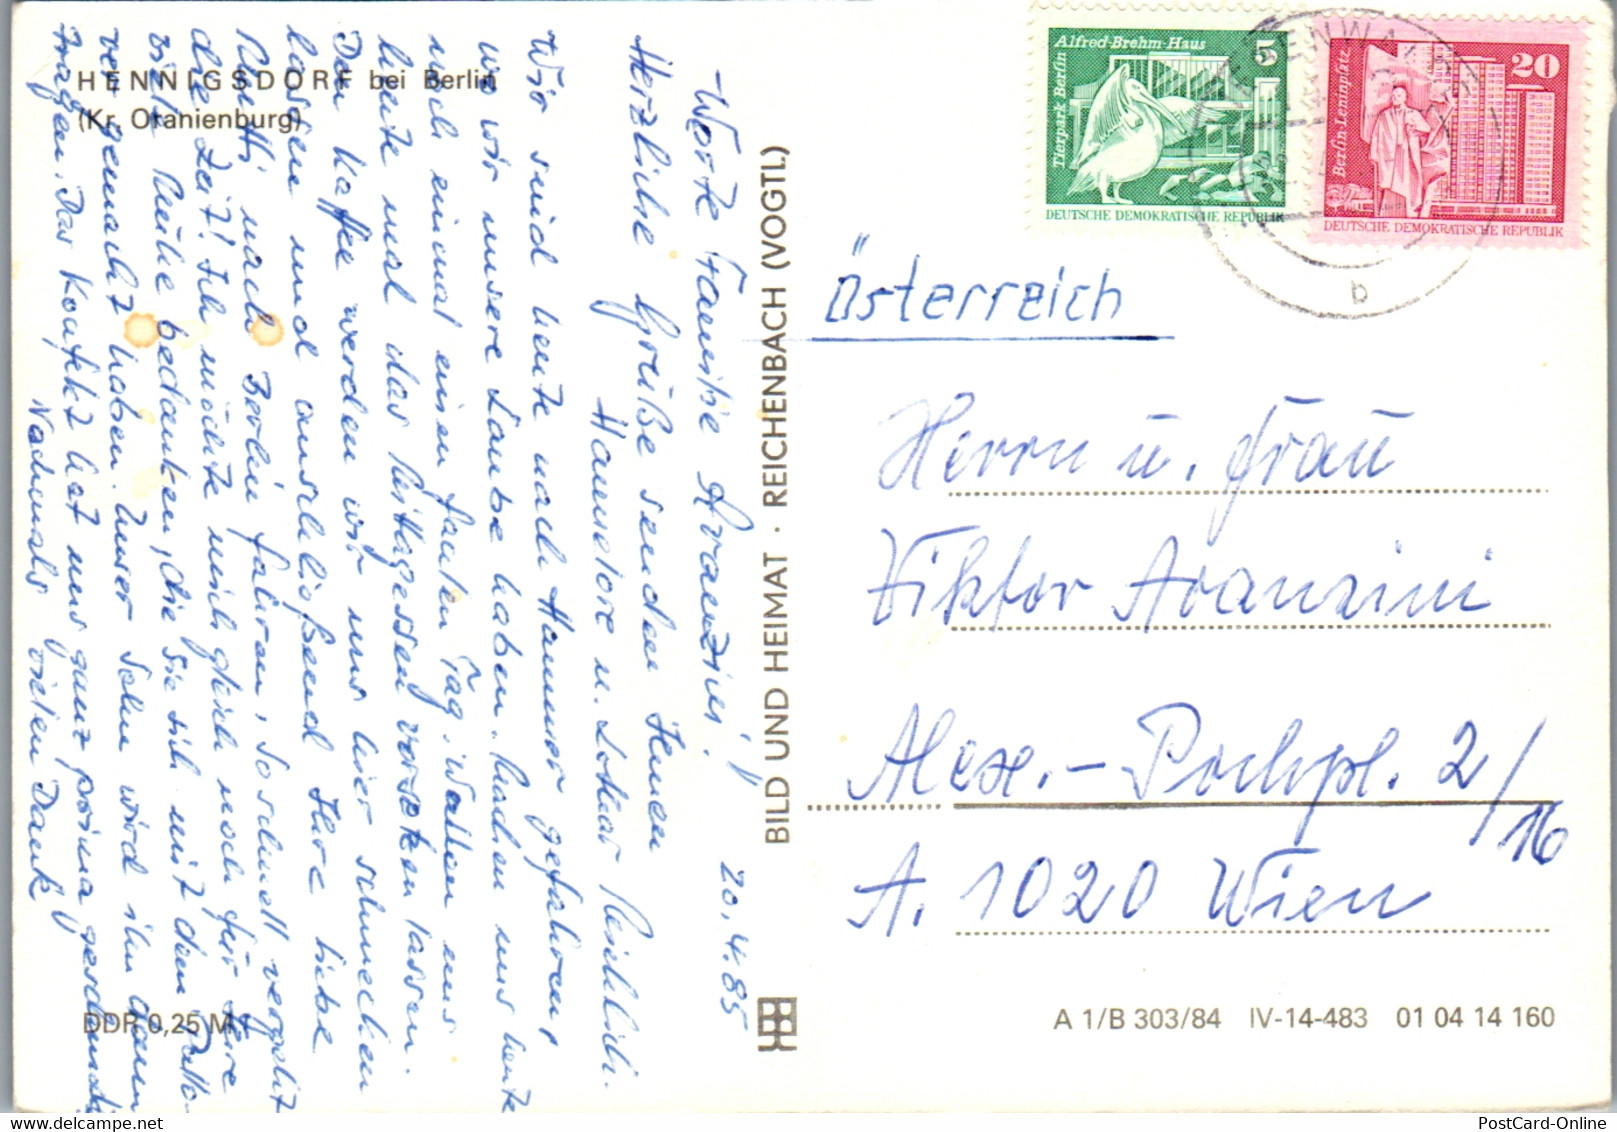 HENNIGSDORF bei Berlin
(Kr. Oranienburg)
20.4.85
Werte Familie Aranzini!
Herzliche Grüße senden Ihnen
Hannelore u. Lothar
Wir sind heute nach Hammer gefahren,
wo wir unsere Laube haben. Machen uns heute
noch einmal einen faulen Tag. Wollen uns
heute mal das Mittagessen vorsetzen lassen.
Den Kaffee werden wir uns hier schmecken
lassen und anschließend Ihre liebe
Mutti nach Berlin fahren. So schnell vergeht
die Zeit! Ich möchte mich gleich noch für Ihre
viele Mühe bedanken, die Sie sich mit den
gemacht haben. Unser Sohn wird ihn dann
tragen. Das Konfekt hat uns ganz prima geschmeckt.
Nochmals vielen Dank
DDR 0,25 M
BILD UND HEIMAT · REICHENBACH (VOGTL)
Alfred-Brehm-Haus
5
Tierpark Berlin
DEUTSCHE DEMOKRATISCHE REPUBLIK
20
Berlin-Leninplatz
DEUTSCHE DEMOKRATISCHE REPUBLIK
b
Österreich
Herrn u. Frau
Viktor Aranzini
Alex.-Pochpl. 2/16
A. 1020 Wien
A 1/B 303/84 IV-14-483 01 04 14 160
PostCard-Online
www.delcampe.net